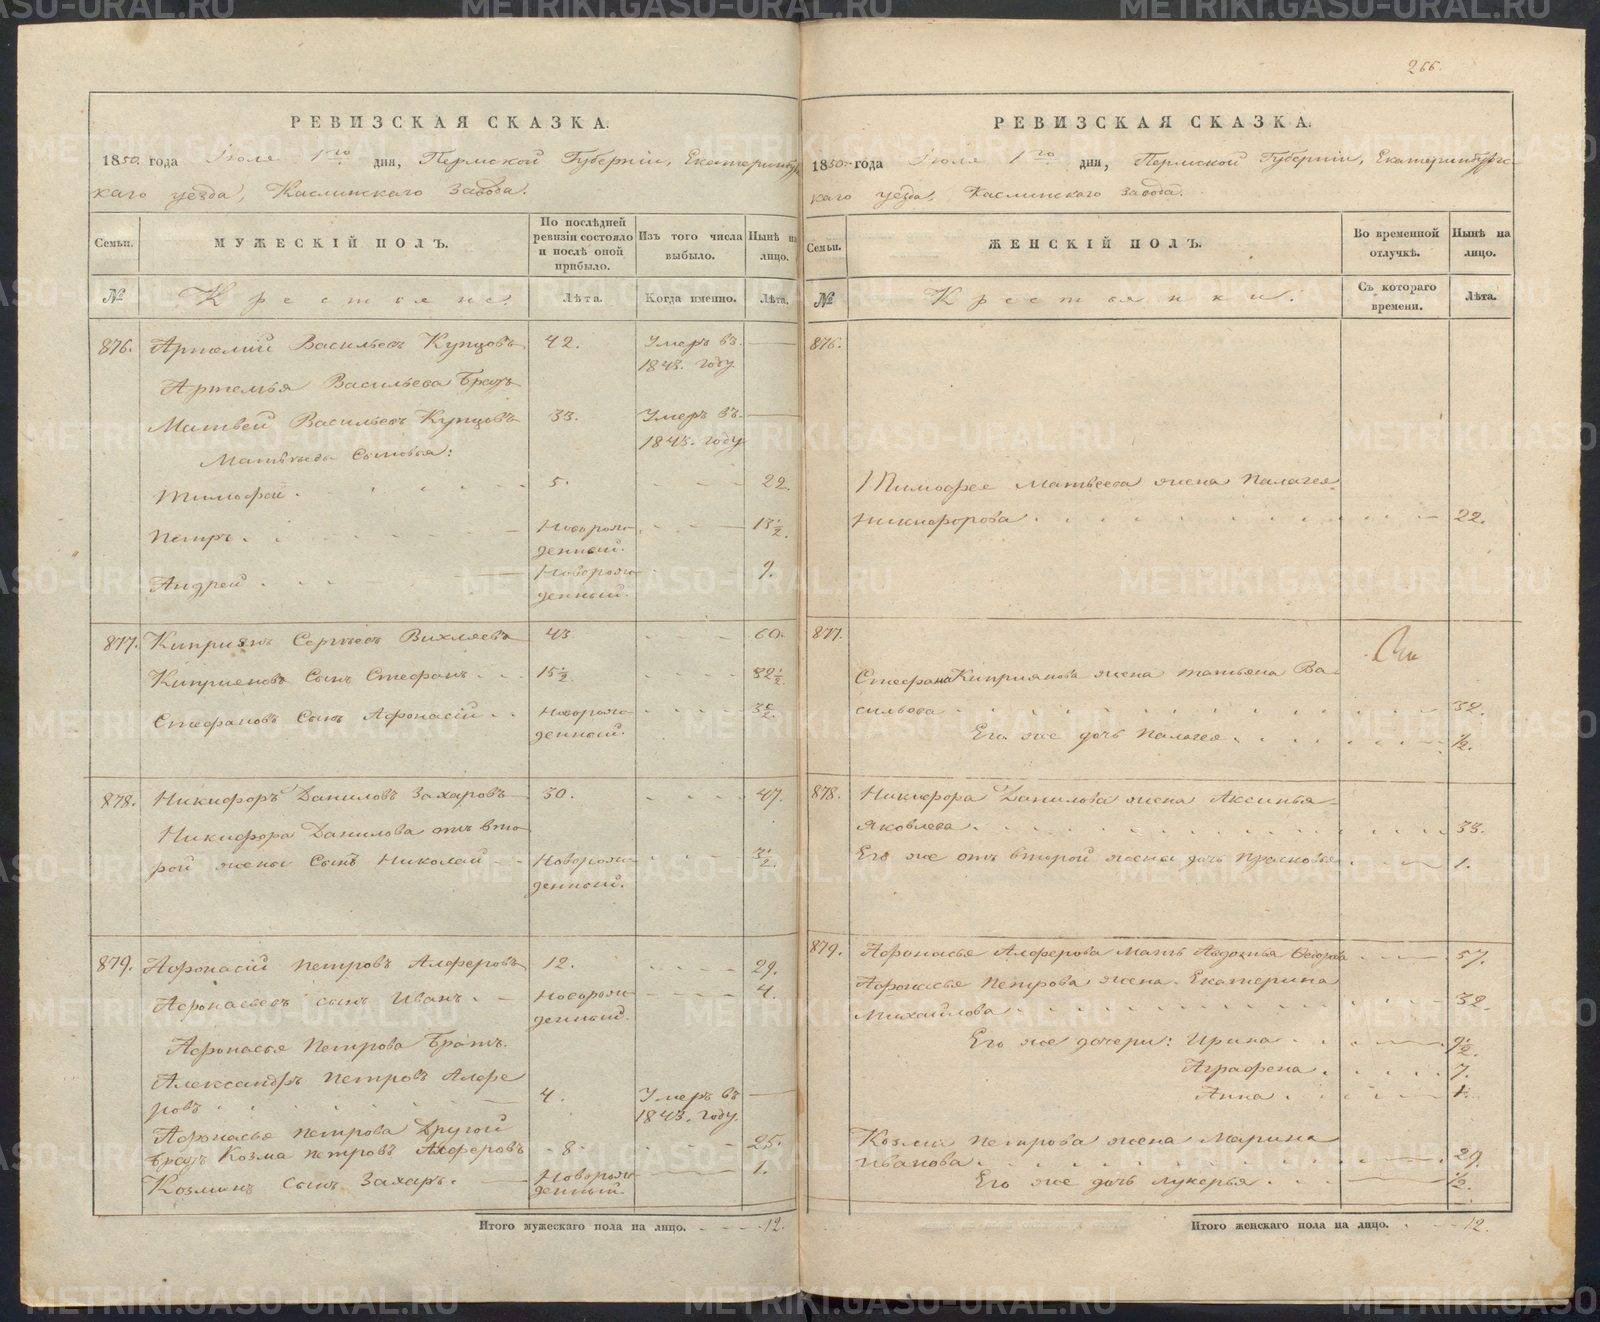 266.
РЕВИЗСКАЯ СКАЗКА.
1850. года Іюля 1го дня, Пермской Губерніи, Екатеринбург
скаго уезда, Каслинскаго завода.
Семьи.
МУЖЕСКІЙ ПОЛЪ.
По послѣдней ревизіи состояло и послѣ оной прибыло.
Изъ того числа выбыло.
Нынѣ на лицо.
№
Крестьяне.
Лѣта.
Когда именно.
Лѣта.
876. Артемій Васильевъ Купцовъ 42. Умеръ въ
1843. году
Артемья Васильева братъ
Матвей Васильевъ Купцовъ 33. Умеръ въ
1843. году
Матвѣевы сыновья:
Тимофей 5. 22.
Петръ Новорож 13 1/2.
денный.
Андрей Новорож 9.
денный.
877. Кипріянъ Сергѣевъ Вихляевъ 43 60.
Кипріановъ сынъ Стефанъ 15 1/2 32 1/2.
Стефановъ сынъ Афонасій Новорож
денный.
878. Никифоръ Даниловъ Захаровъ 30. 47.
Никифора Данилова отъ вто
рой жены сынъ Николай Новорож 3 1/2.
денный.
879. Афонасій Петровъ Алферовъ 12. 29.
Афонасьевъ сынъ Иванъ Новорож 4.
денный.
Афонасья Петрова братъ.
Александръ Петровъ Алфе
ровъ 4. Умеръ въ
1843. году.
Афонасья Петрова другой
братъ Козма Петровъ Алферовъ 8. 25.
Козминъ сынъ Захаръ. Новорож 1.
денный.
Итого мужескаго пола на лицо. 12.
РЕВИЗСКАЯ СКАЗКА.
1850. года Іюля 1го дня, Пермской Губерніи, Екатеринбургс-
каго уезда, Каслинскаго завода.
Семьи.
ЖЕНСКІЙ ПОЛЪ.
Во временной отлучкѣ.
Нынѣ на лицо.
№
Крестьянки.
Съ котораго времени.
Лѣта.
876.
Тимофее Матвеева жена Палагея
Никифорова 22.
877.
Стефана Кипріянова жена татьяна Ва-
сильева 32.
Его же дочь Палагея 1/2.
878. Никифора Данилова жена Аксинья
Яковлева 33.
Его же отъ второй жены дочь Прасковья 1.
879. Афонасья Алферова мать Авдотья Федорова 57.
Афонасья Петрова жена Екатерина
Михайлова 32.
Его же дочери: Ирина 9 1/2.
Аграфена 7.
Анна 1.
Козмы Петрова жена Марина
Иванова 29.
Его же дочь Лукерья 1/2.
Итого женскаго пола на лицо. 12.
METRIKI.GASO-URAL.RU